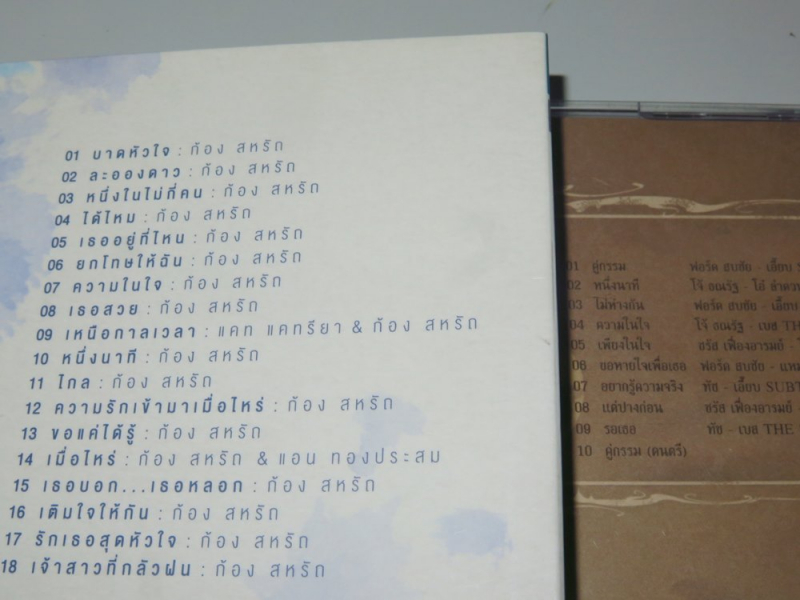 01 บาดหัวใจ : ก้อง สหรัถ
02 ละอองดาว : ก้อง สหรัถ
03 หนึ่งในไม่กี่คน : ก้อง สหรัถ
04 ได้ไหม : ก้อง สหรัถ
05 เธออยู่ที่ไหน : ก้อง สหรัถ
06 ยกโทษให้ฉัน : ก้อง สหรัถ
07 ความในใจ : ก้อง สหรัถ
08 เธอสวย : ก้อง สหรัถ
09 เหนือกาลเวลา : แคท แคทรียา & ก้อง สหรัถ
10 หนึ่งนาที : ก้อง สหรัถ
11 ไกล : ก้อง สหรัถ
12 ความรักเข้ามาเมื่อไหร่ : ก้อง สหรัถ
13 ขอแค่ได้รู้ : ก้อง สหรัถ
14 เมื่อไหร่ : ก้อง สหรัถ & แอน ทองประสม
15 เธอบอก...เธอหลอก : ก้อง สหรัถ
16 เติมใจให้กัน : ก้อง สหรัถ
17 รักเธอสุดหัวใจ : ก้อง สหรัถ
18 เจ้าสาวที่กลัวฝน : ก้อง สหรัถ
01 คู่กรรม ฟอร์ด สบชัย - เอี๊ยบ
02 หนึ่งนาที โจ้ อณรัฐ - โอ๋
03 ไม่ห่างกัน ฟอร์ด สบชัย - เอี๊ยบ
04 ความในใจ โจ้ อณรัฐ - เบส THE
05 เพียงในใจ ชรัส เฟื่องอารมย์ -
06 ขอหายใจเพื่อเธอ ฟอร์ด สบชัย -
07 อยากรู้ความจริง ทัช - เอี๊ยบ
08 แต่ปางก่อน ชรัส เฟื่องอารมย์ -
09 รอเธอ ทัช - เบส THE
10 คู่กรรม (ดนตรี)